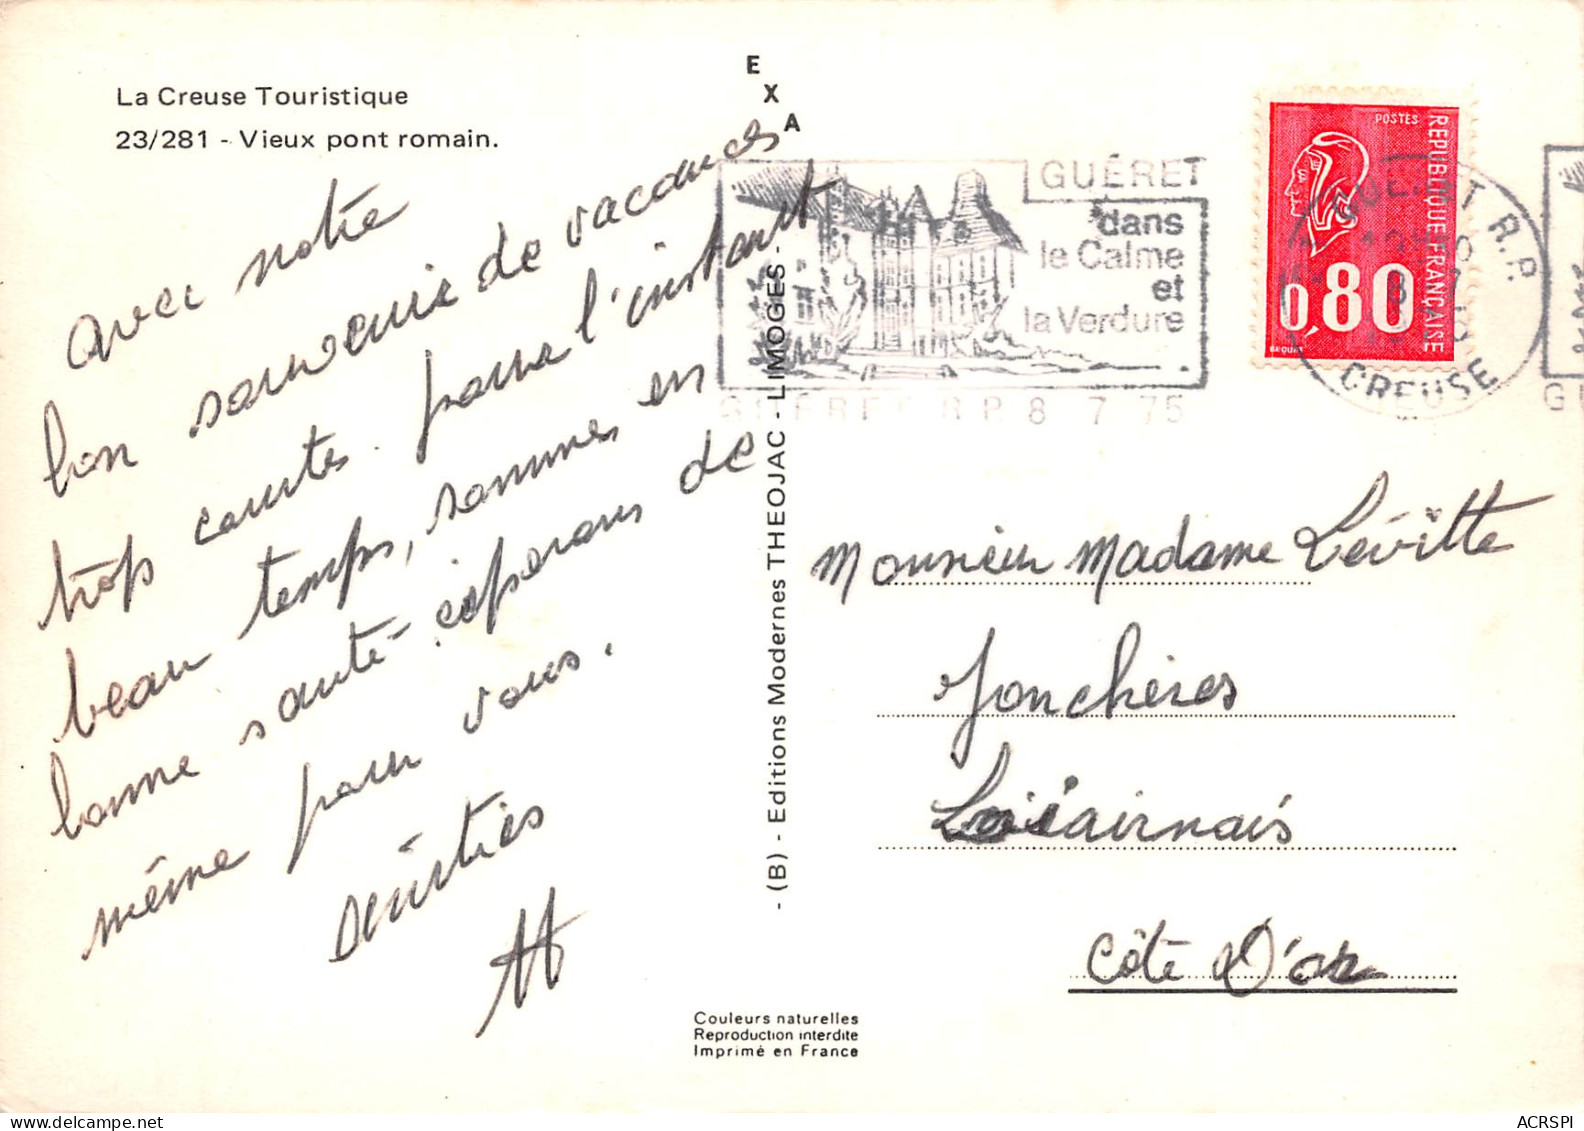 La Creuse Touristique
23/281 - Vieux pont romain.
EXA
avec notre
bon souvenir de vacances
trop courtes. pour l'instant
beau temps, sommes en
bonne santé. espérons de
même pour vous.
Amitiés
- (B) - Editions Modernes THEOJAC - LIMOGES -
GUÉRET
dans
le Calme
et
la Verdure
GUERET R.P. 8 7 75
POSTES
REPUBLIQUE FRANÇAISE
0,80
BEQUET
GUERET R.P.
CREUSE
Monsieur Madame Lévitte
Jonchères
Côte D'or
Couleurs naturelles
Reproduction interdite
Imprimé en France
ACRSPI